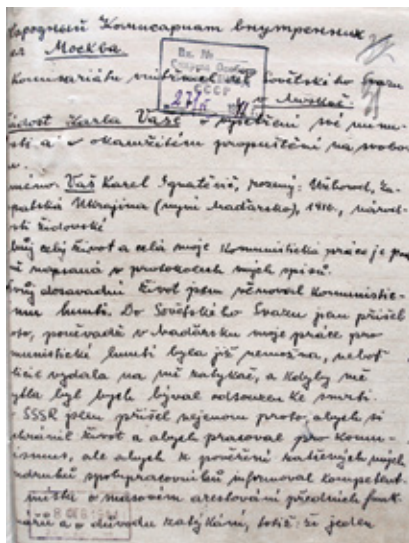 Народный Комисариат внутренних
Москва
Komisariátu vnitřních věcí Sovětského Svazu
v Moskvě.
Žádost Karla Vaše o vyšetření své
a o okamžitém propuštění na svobo
Вх. №
СССР
Vaš Karel Ignatěvič, rozený: Užhorod, Za-
patská Ukrajina (nyní Maďarsko), 1916., národ-
sti židovské
můj celý život a celá moje komunistická práce je po
napsaná v protokolech mých spisů.
Svůj dosavadní život jsem věnoval komunistic-
mu hnutí. Do Sovětského Svazu jsem přišel
oto, poněvadž v Maďarsku moje práce pro
munistické hnutí byla již nemožná, neboť
vydala na mě zatykač, a kdyby mě
ytla byl bych býval odsouzen ke smrti.
SSSR jsem přišel nejenom proto, abych si
chránil život a abych pracoval pro komu-
ismus, ale abych z pověření mých
udruhů spolupracovníků informoval kompetent-
místa o masovém arestování předních funk-
ářů a o důvodu zatýkání, totiž: že jeden